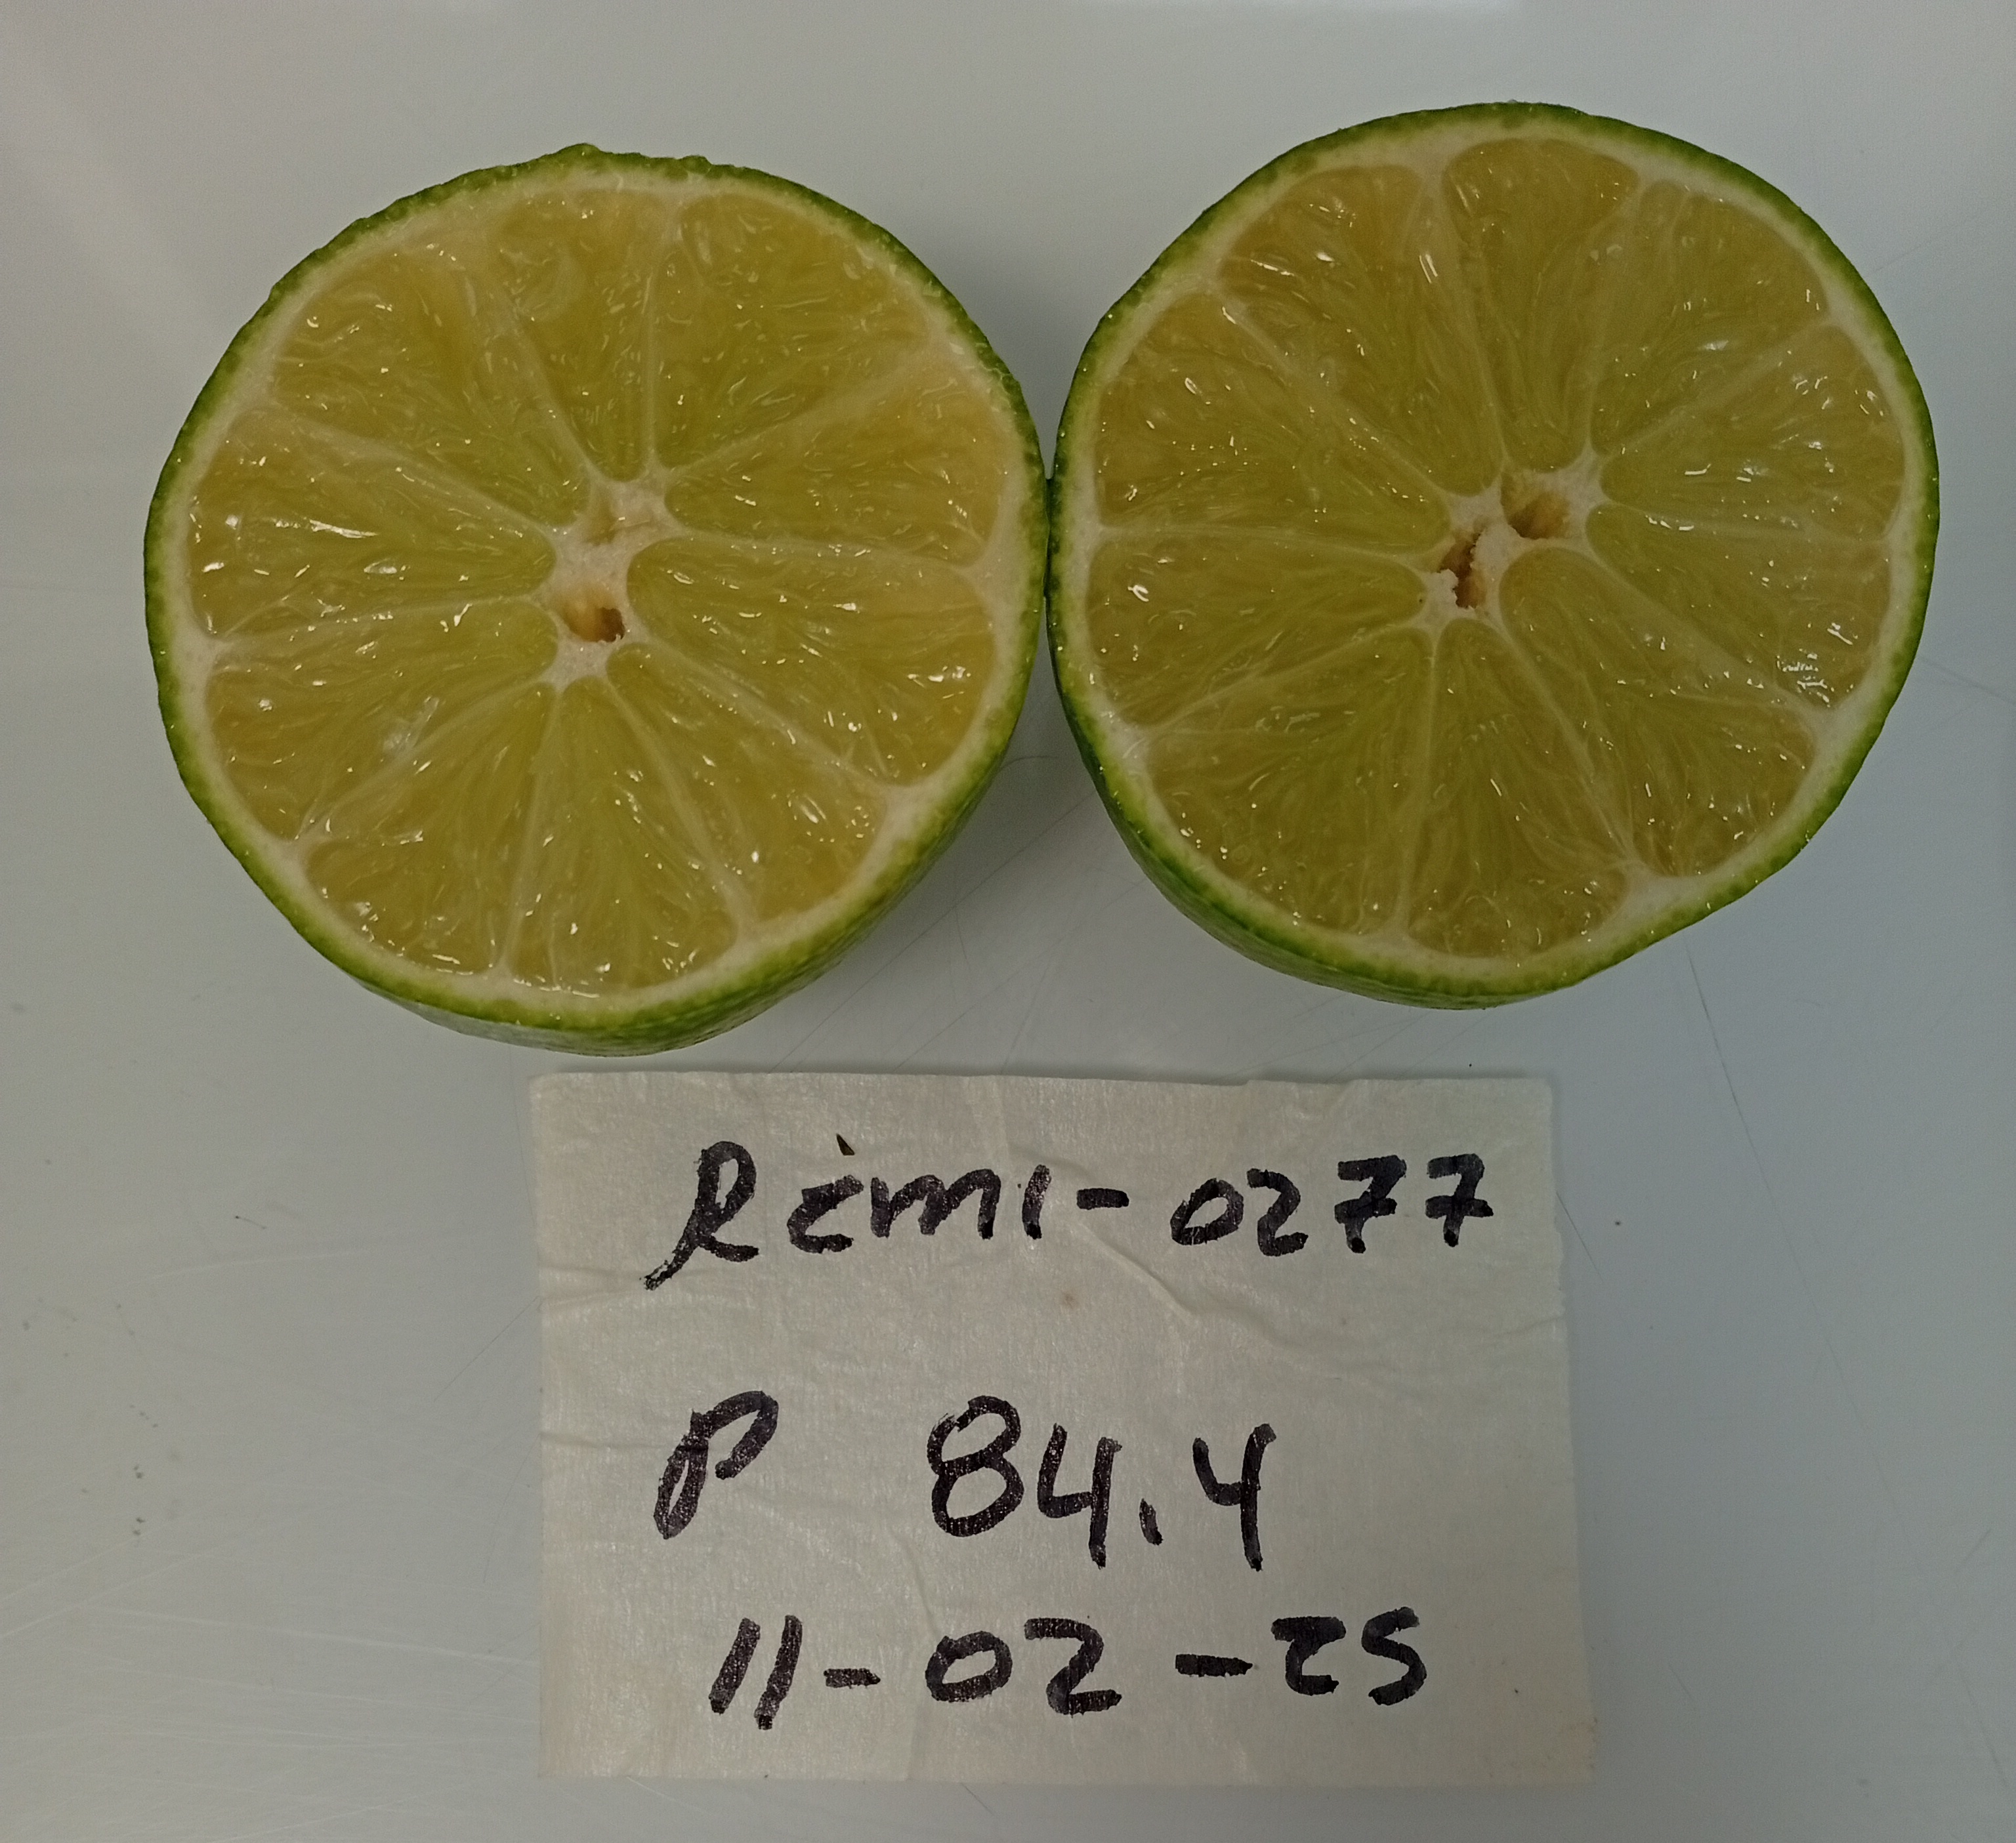 Rimi-0277
P 84.4
11-02-25